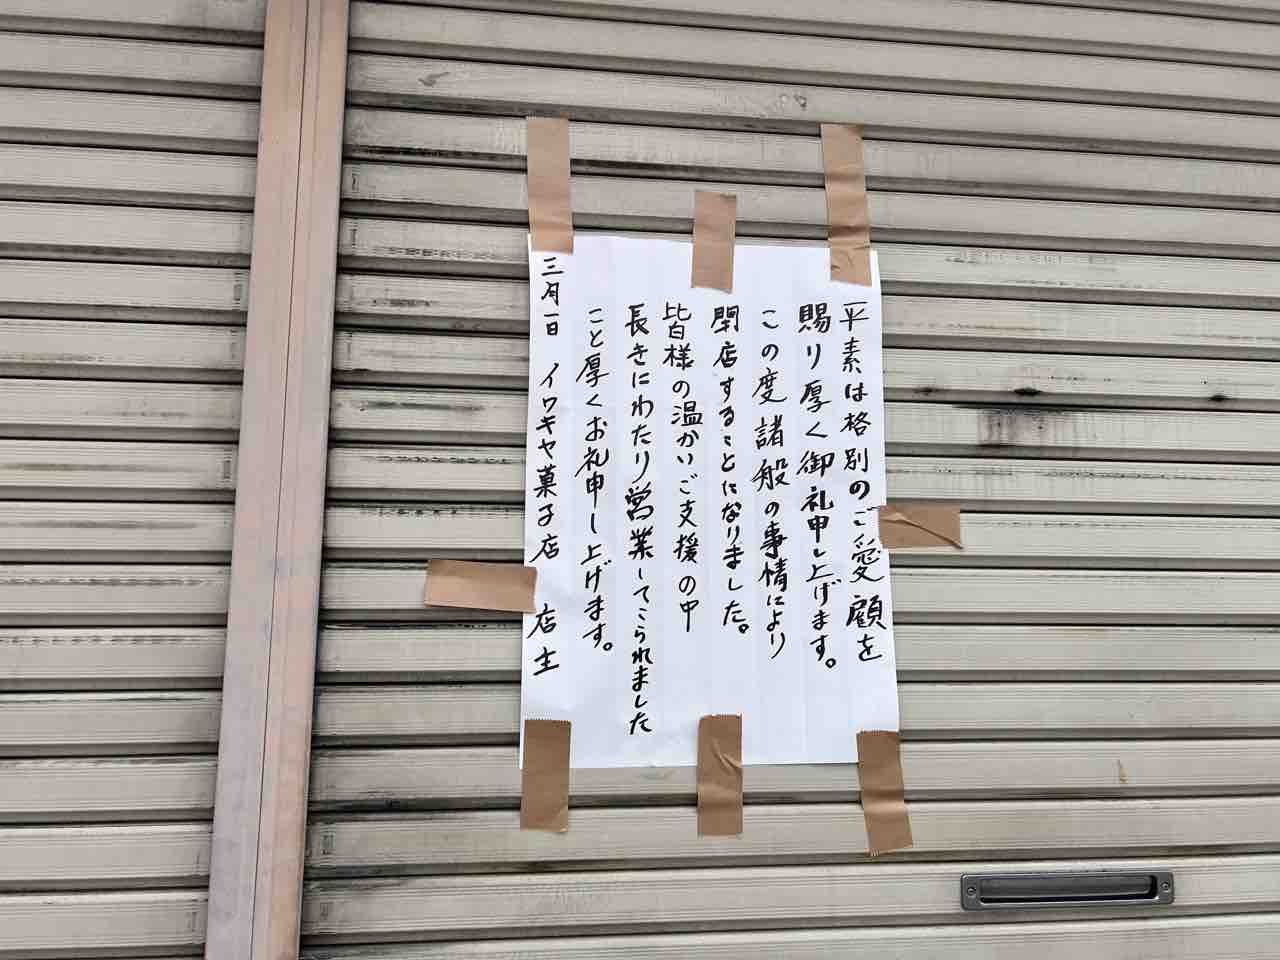 平素は格別のご愛顧を
賜り厚く御礼申し上げます。
この度諸般の事情により
閉店することになりました。
皆様の温かいご支援の中
長きにわたり営業してこられました
こと厚くお礼申し上げます。
三月一日 イワキヤ菓子店 店主